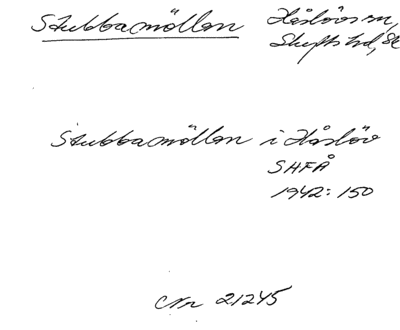 Stubbamöllan Håslövs sn,
Skytts hd, Sk
Stubbamöllan i Håslöv
SHFÅ
1942: 150
Nr 21245